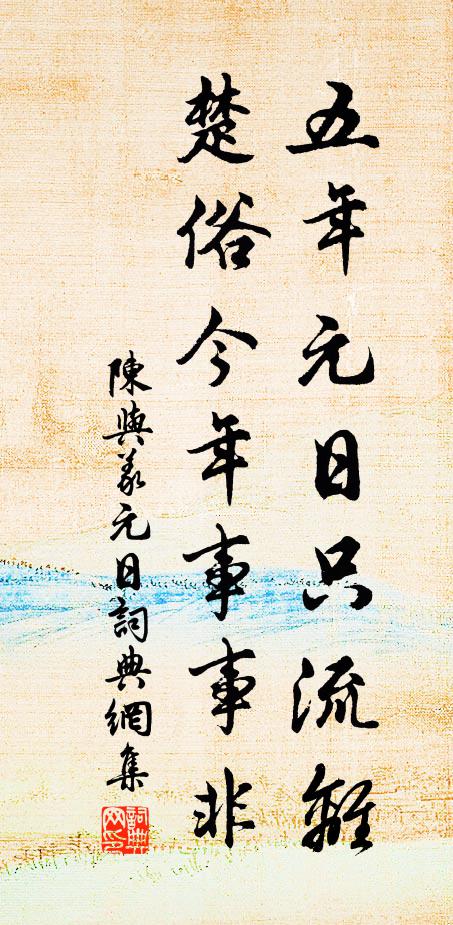 五年元日只流離
楚俗今年事事非
陳與義元日詞典網集
詞典網印